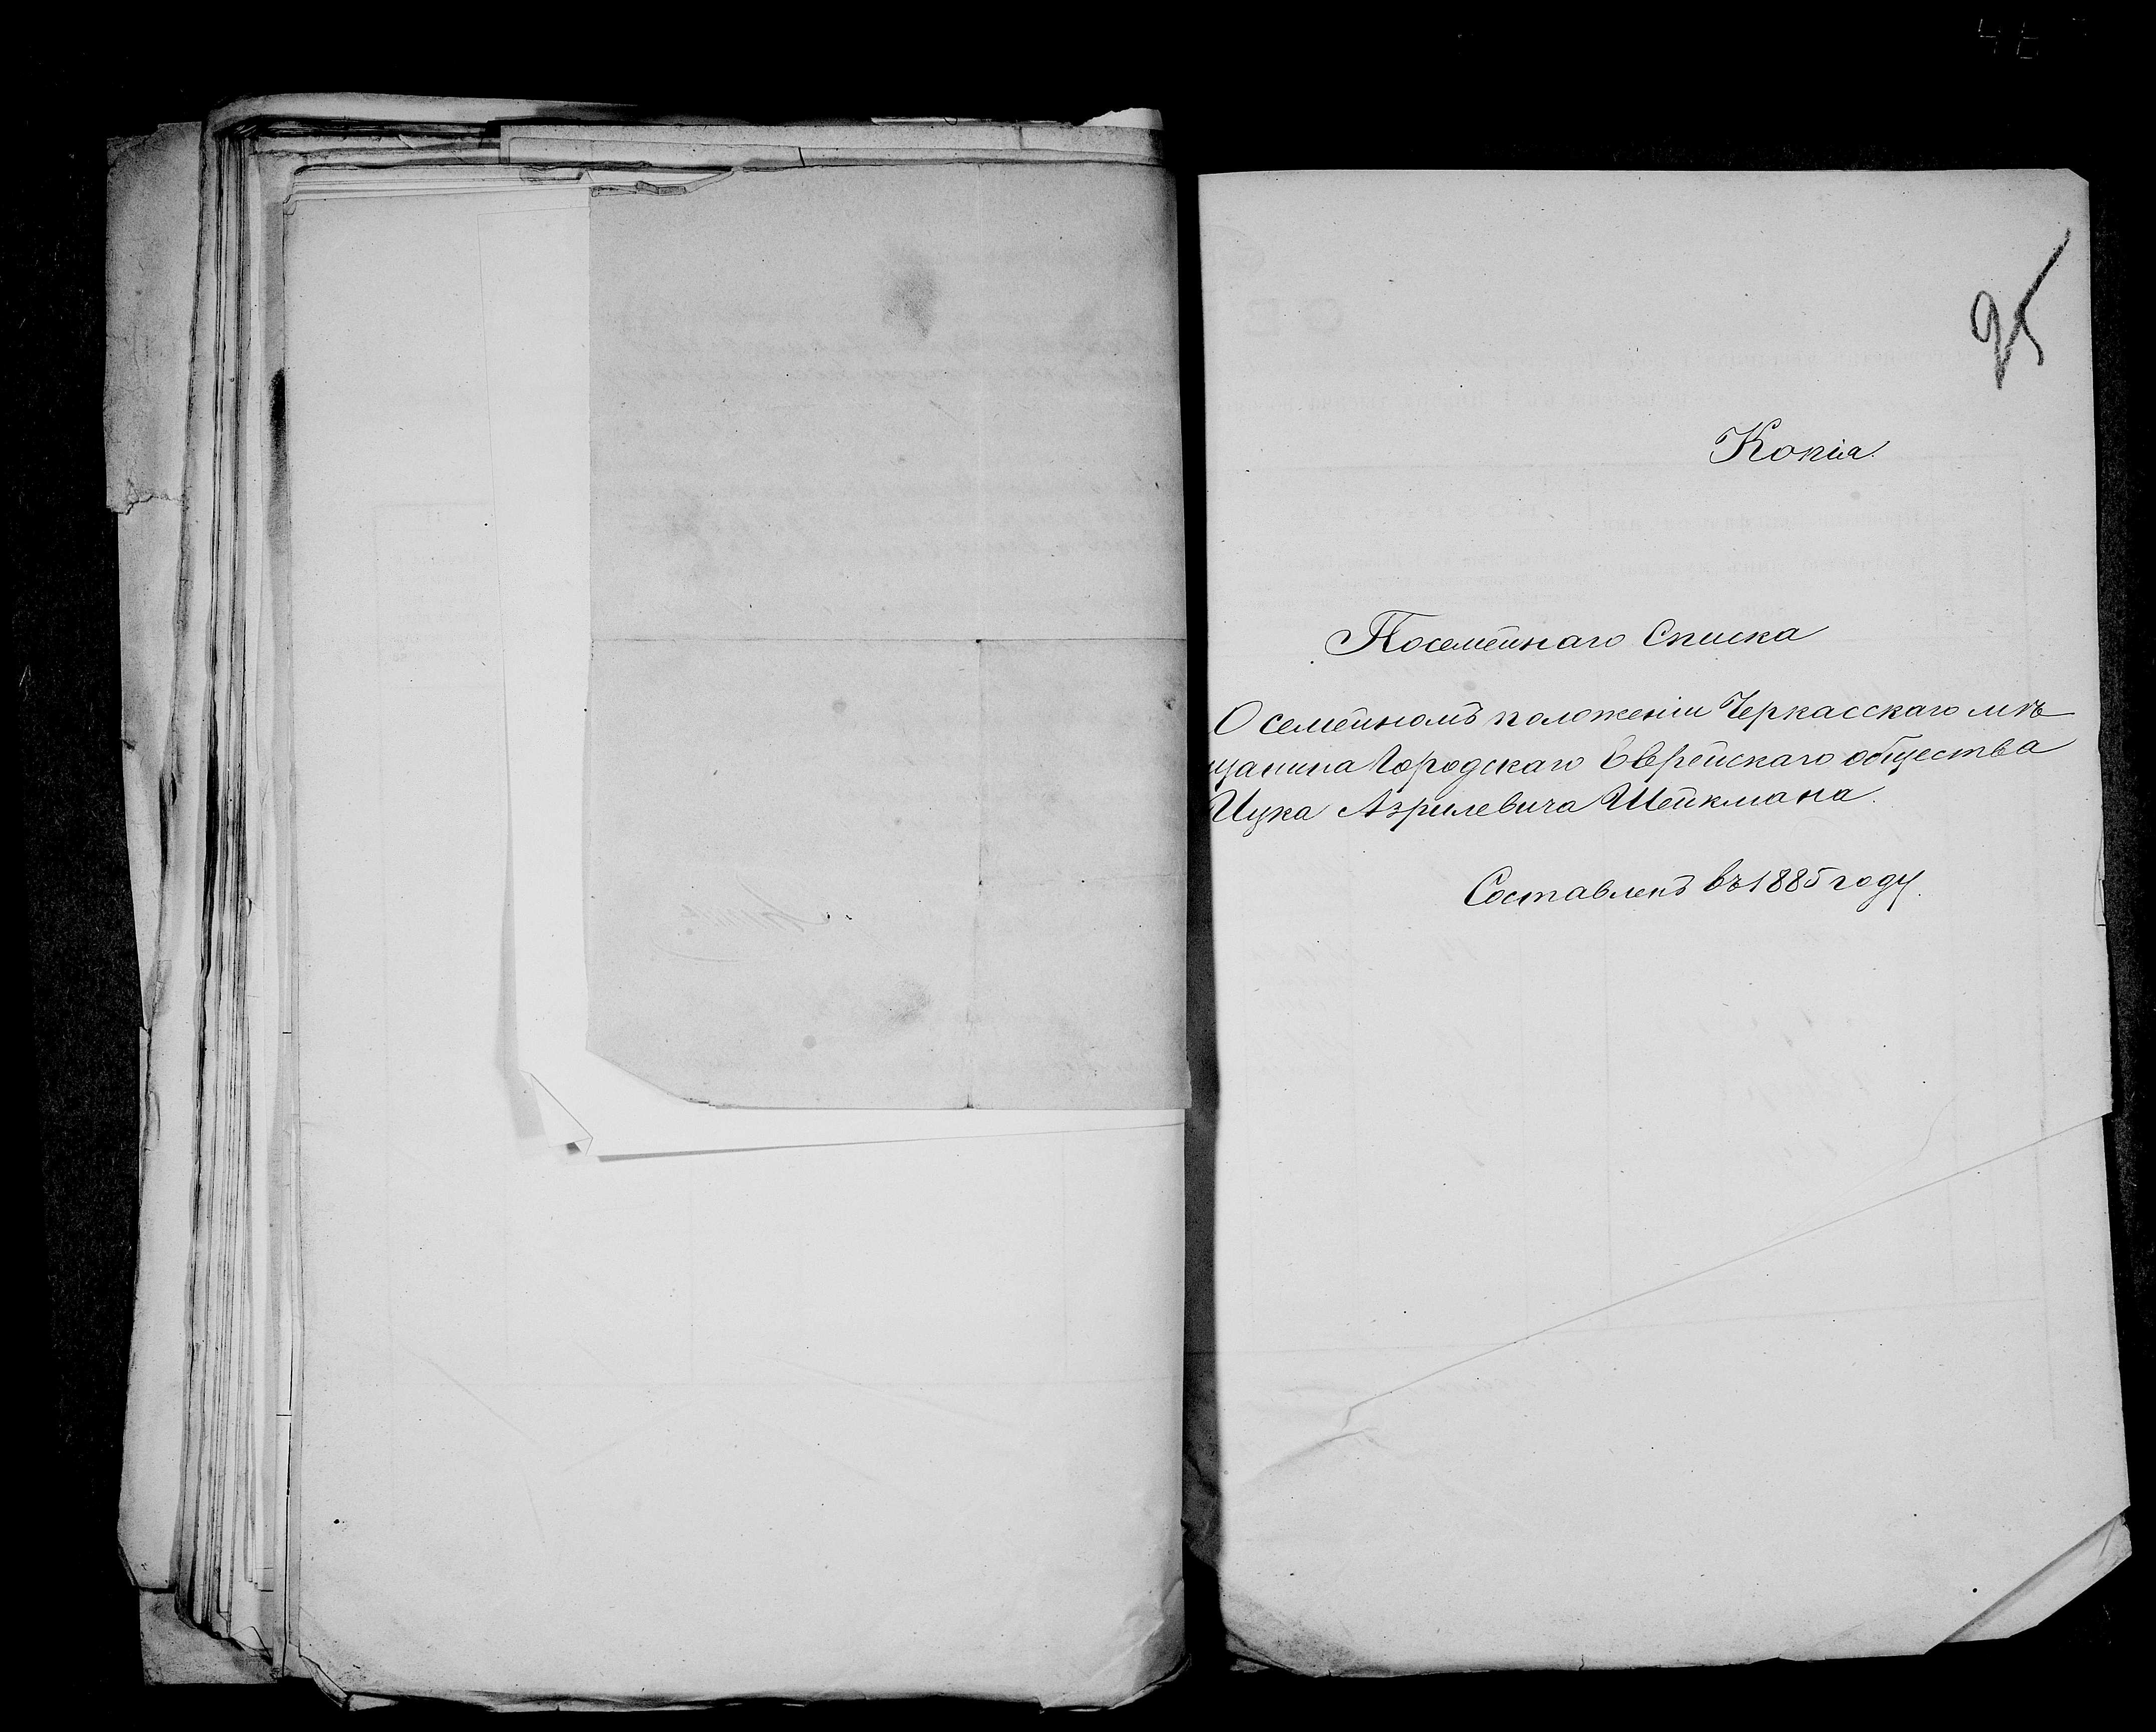 25
Копія.
Посемейнаго Списка
О семейномъ положеніи Черкасскаго мѣ
щанина Городскаго Еврейскаго общества
Ицка Азрилевича Шейкмана.
Составленъ въ 1885 году.